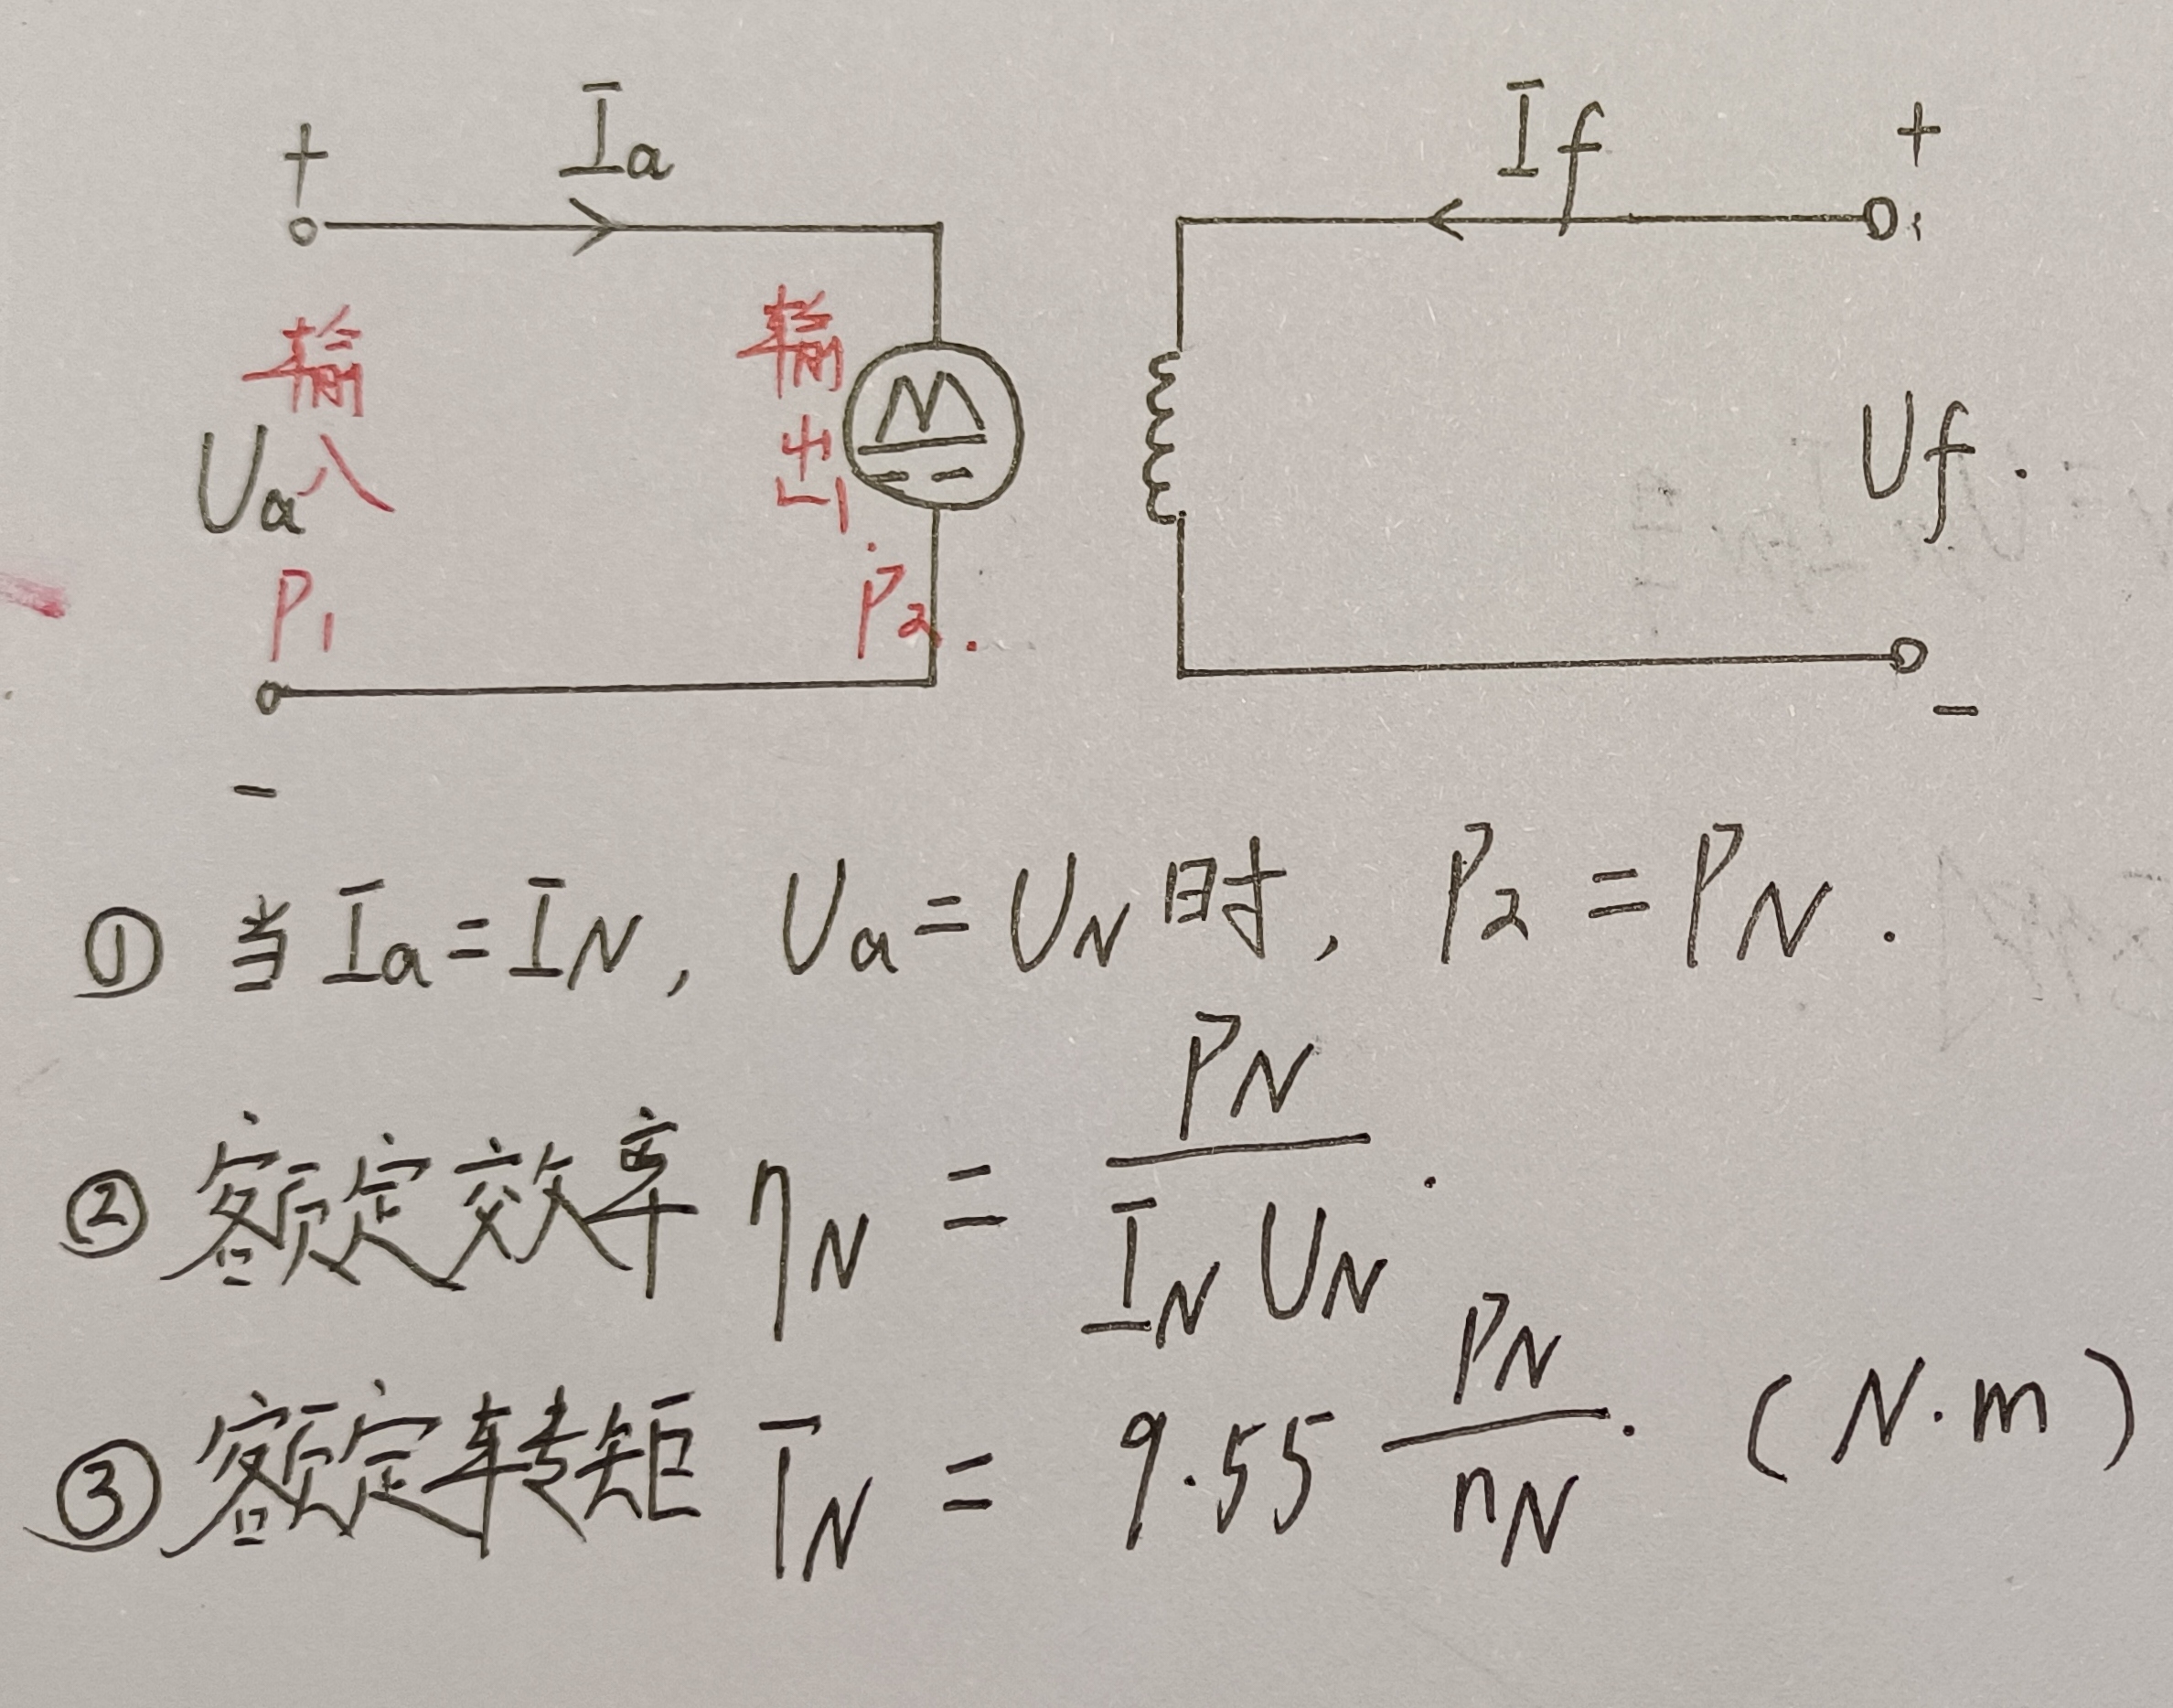 + Ia If +
输入 Ua P1
输出. P2.
M
Uf.
-
-
① 当 Ia = IN, Ua = UN 时, P2 = PN.
② 额定效率 ηN = PN / IN UN.
③ 额定转矩 TN = 9.55 PN / nN. (N·m)